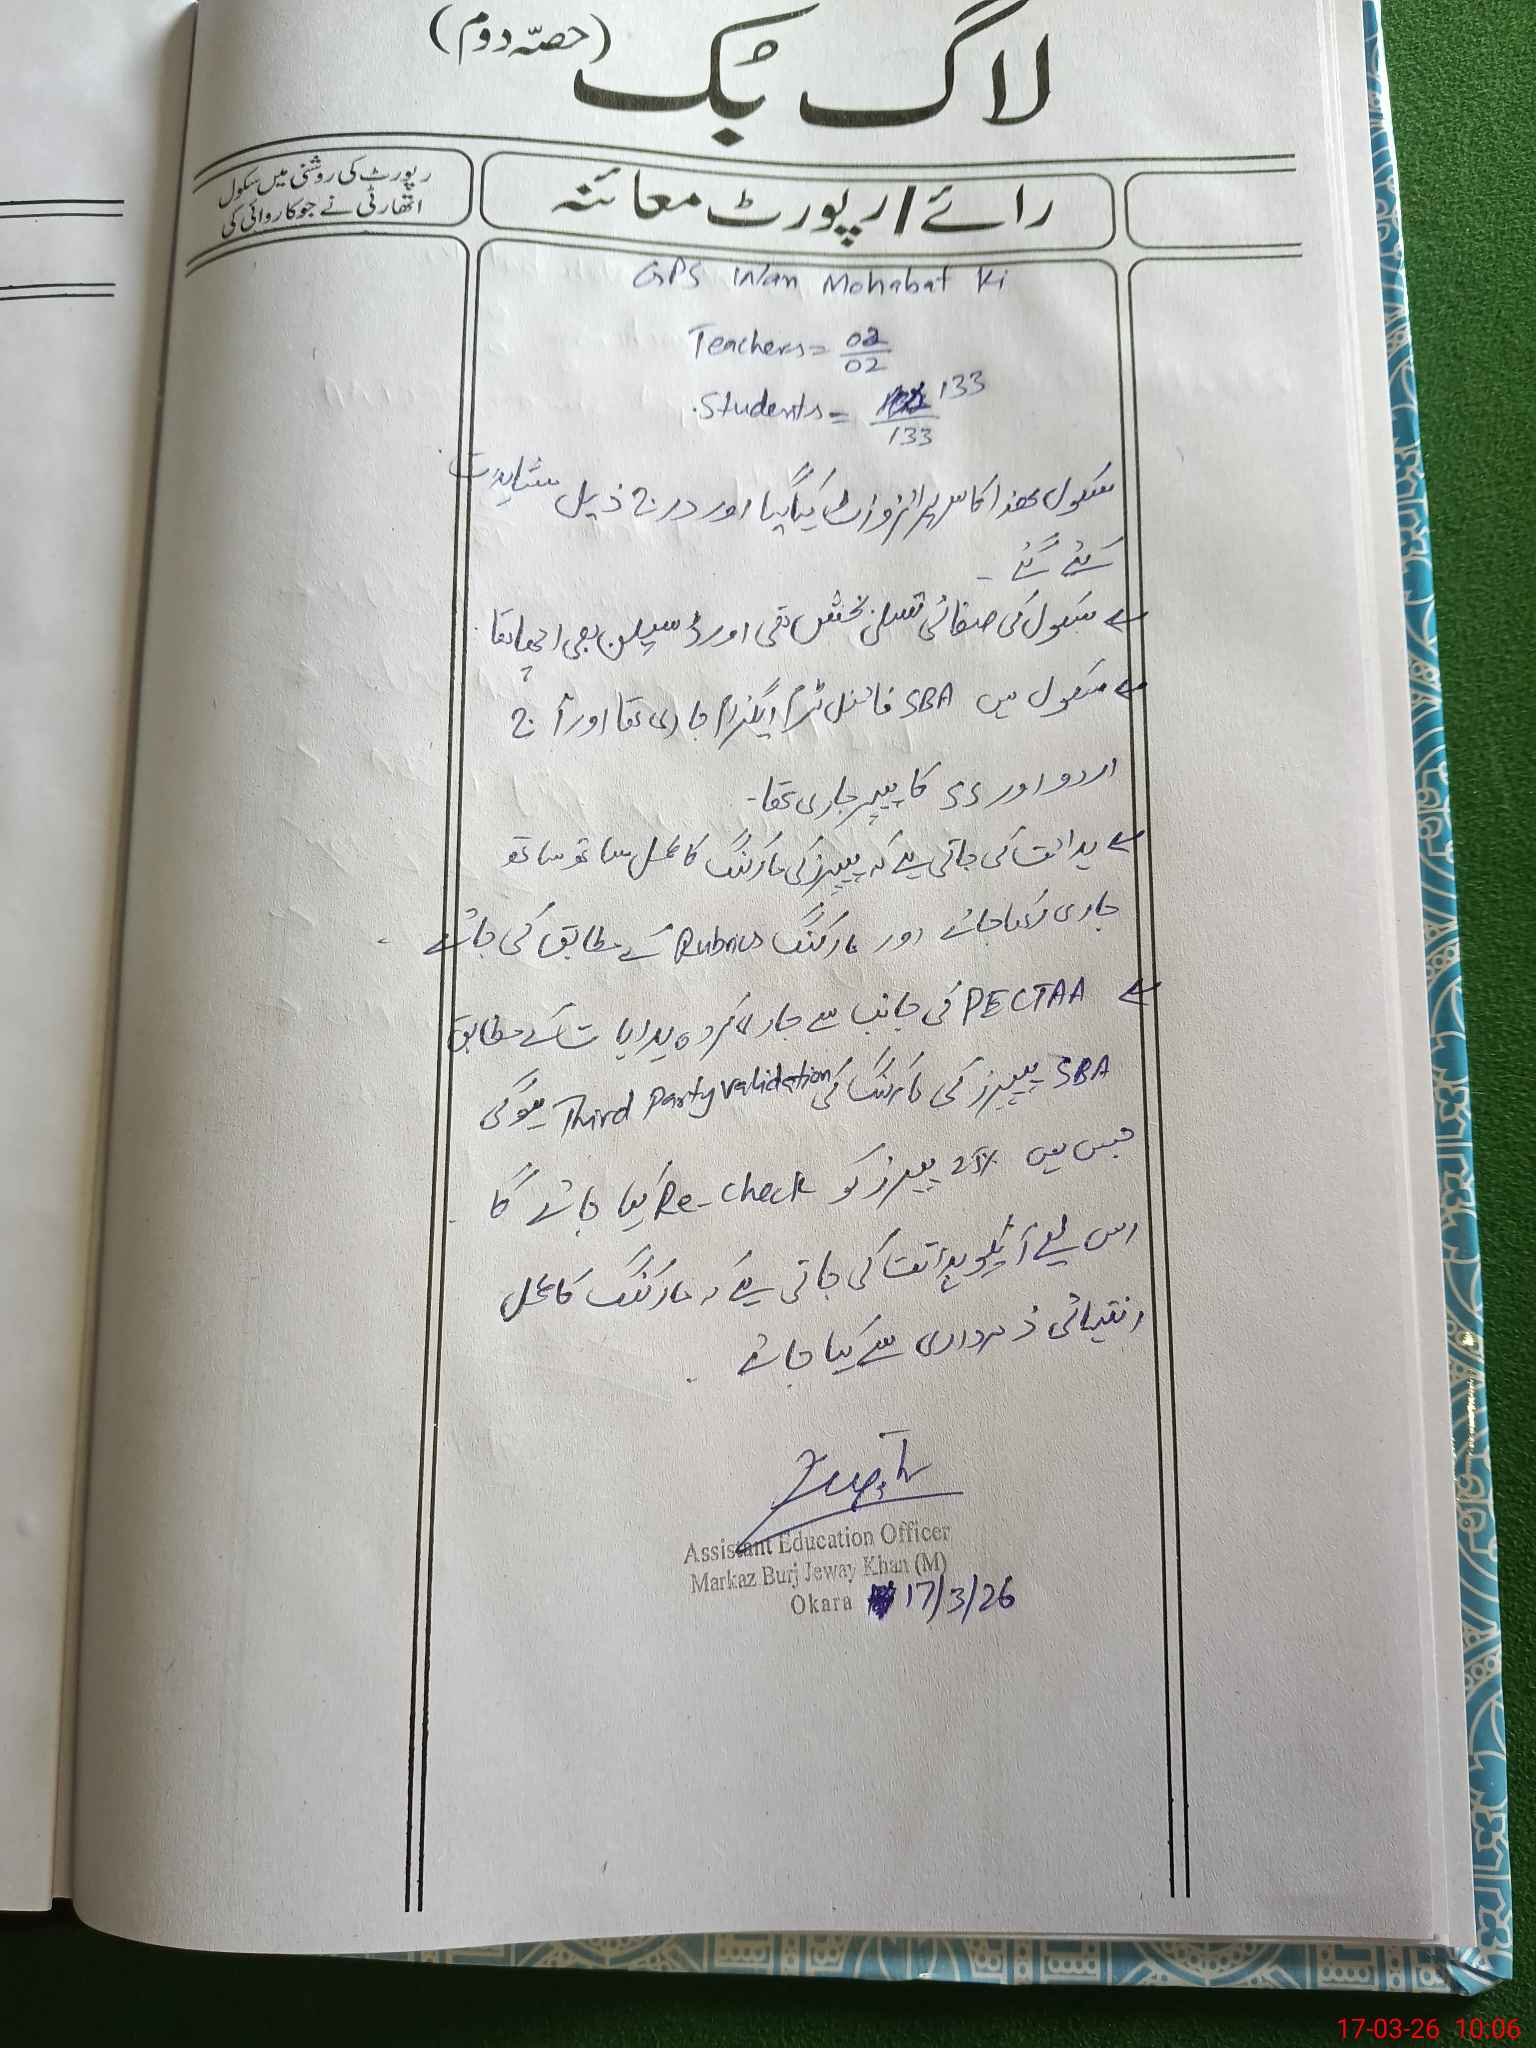 لاگ بُک (حصّہ دوم)
رائے / رپورٹ معائنہ
رپورٹ کی روشنی میں سکول
اتھارٹی نے جو کاروائی کی
GPS Wan Mohabat Ki
Teachers = 02/02
Students = 133/133
سکول ھذا کا سرپرائز وزٹ کیا گیا اور درج ذیل مشاہدات
کئے گئے۔
سکول کی صفائی تسلی بخش تھی اور ڈسپلن بھی اچھا تھا۔
سکول میں SBA فائنل ٹرم ایگزام جاری تھا اور آج
اردو اور SS کا پیپر جاری تھا۔
ہدائت کی جاتی ہے کہ پیپرز کی مارکنگ کا عمل ساتھ ساتھ
جاری رکھا جائے اور مارکنگ Rubrics کے مطابق کی جائے۔
PECTAA کی جانب سے جاری کردہ ہدایات کے مطابق
SBA پیپرز کی مارکنگ کی Third Party validation ہوگی
جس میں 25% پیپرز کو Re-check کیا جائے گا۔
اس لیے آپکو ہدائت کی جاتی ہے کہ مارکنگ کا عمل
انتہائی ذمہ داری سے کیا جائے۔
Assistant Education Officer
Markaz Burj Jeway Khan (M)
Okara 17/3/26
17-03-26 10:06